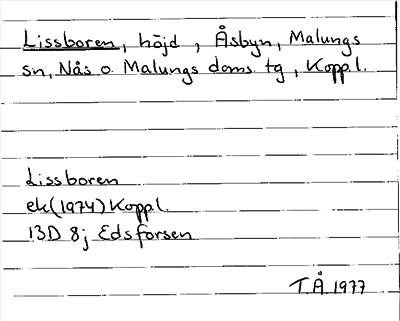 Lissboren, höjd, Åsbyn, Malungs
sn, Nås o Malungs doms. tg, Koppl.
Lissboren
ek(1974) Koppl.
13D 8j Edsforsen
T.Å 1977